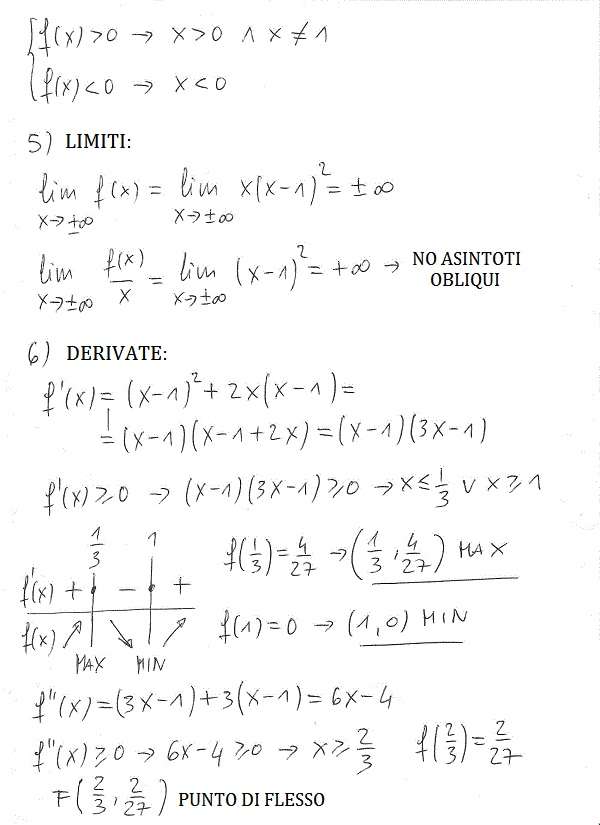 {f(x) > 0 → x > 0 ∧ x ≠ 1
{f(x) < 0 → x < 0
5) LIMITI:
lim x→±∞ f(x) = lim x→±∞ x(x-1)² = ±∞
lim x→±∞ f(x)/x = lim x→±∞ (x-1)² = +∞ → NO ASINTOTI OBLIQUI
6) DERIVATE:
f'(x) = (x-1)² + 2x(x-1) =
= (x-1)(x-1+2x) = (x-1)(3x-1)
f'(x) ≥ 0 → (x-1)(3x-1) ≥ 0 → x ≤ 1/3 ∨ x ≥ 1
1/3 1
f'(x) + - +
f(x) ↗ ↘ ↗
MAX MIN
f(1/3) = 4/27 → (1/3, 4/27) MAX
f(1) = 0 → (1,0) MIN
f''(x) = (3x-1) + 3(x-1) = 6x-4
f''(x) ≥ 0 → 6x-4 ≥ 0 → x ≥ 2/3 f(2/3) = 2/27
F(2/3, 2/27) PUNTO DI FLESSO